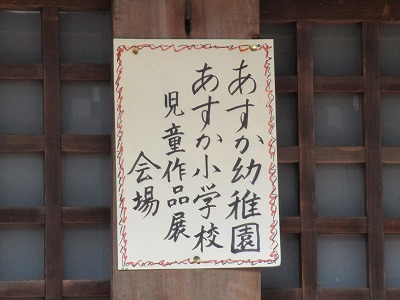 あすか幼稚園
あすか小学校
児童作品展
会場